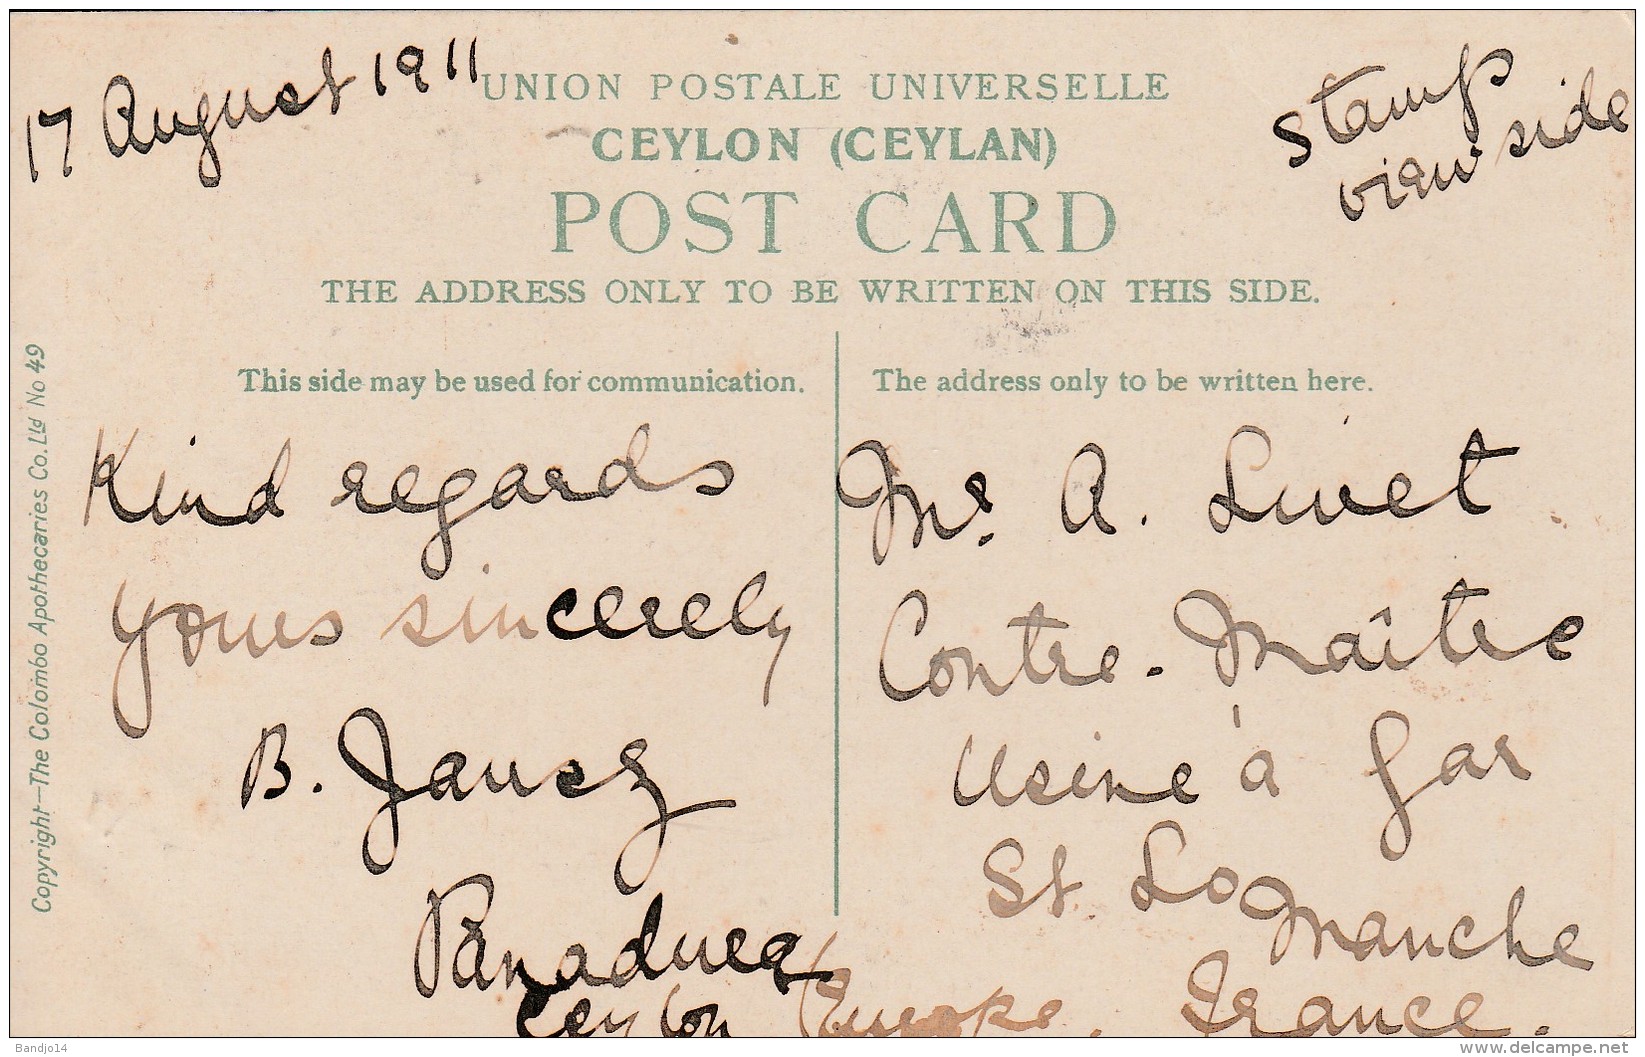 17 August 1911
UNION POSTALE UNIVERSELLE
Stamp
view side
CEYLON (CEYLAN)
POST CARD
THE ADDRESS ONLY TO BE WRITTEN ON THIS SIDE.
Copyright—The Colombo Apothecaries Co. Ltd No 49
This side may be used for communication.
Kind regards
yours sincerely
B. Jansz
Panadura
Ceylon
The address only to be written here.
Mr. A. Livet
Contre-Maître
Usine à Gaz
St. Lo
Manche
Europe. France.
Bandjo14
delcampe.net